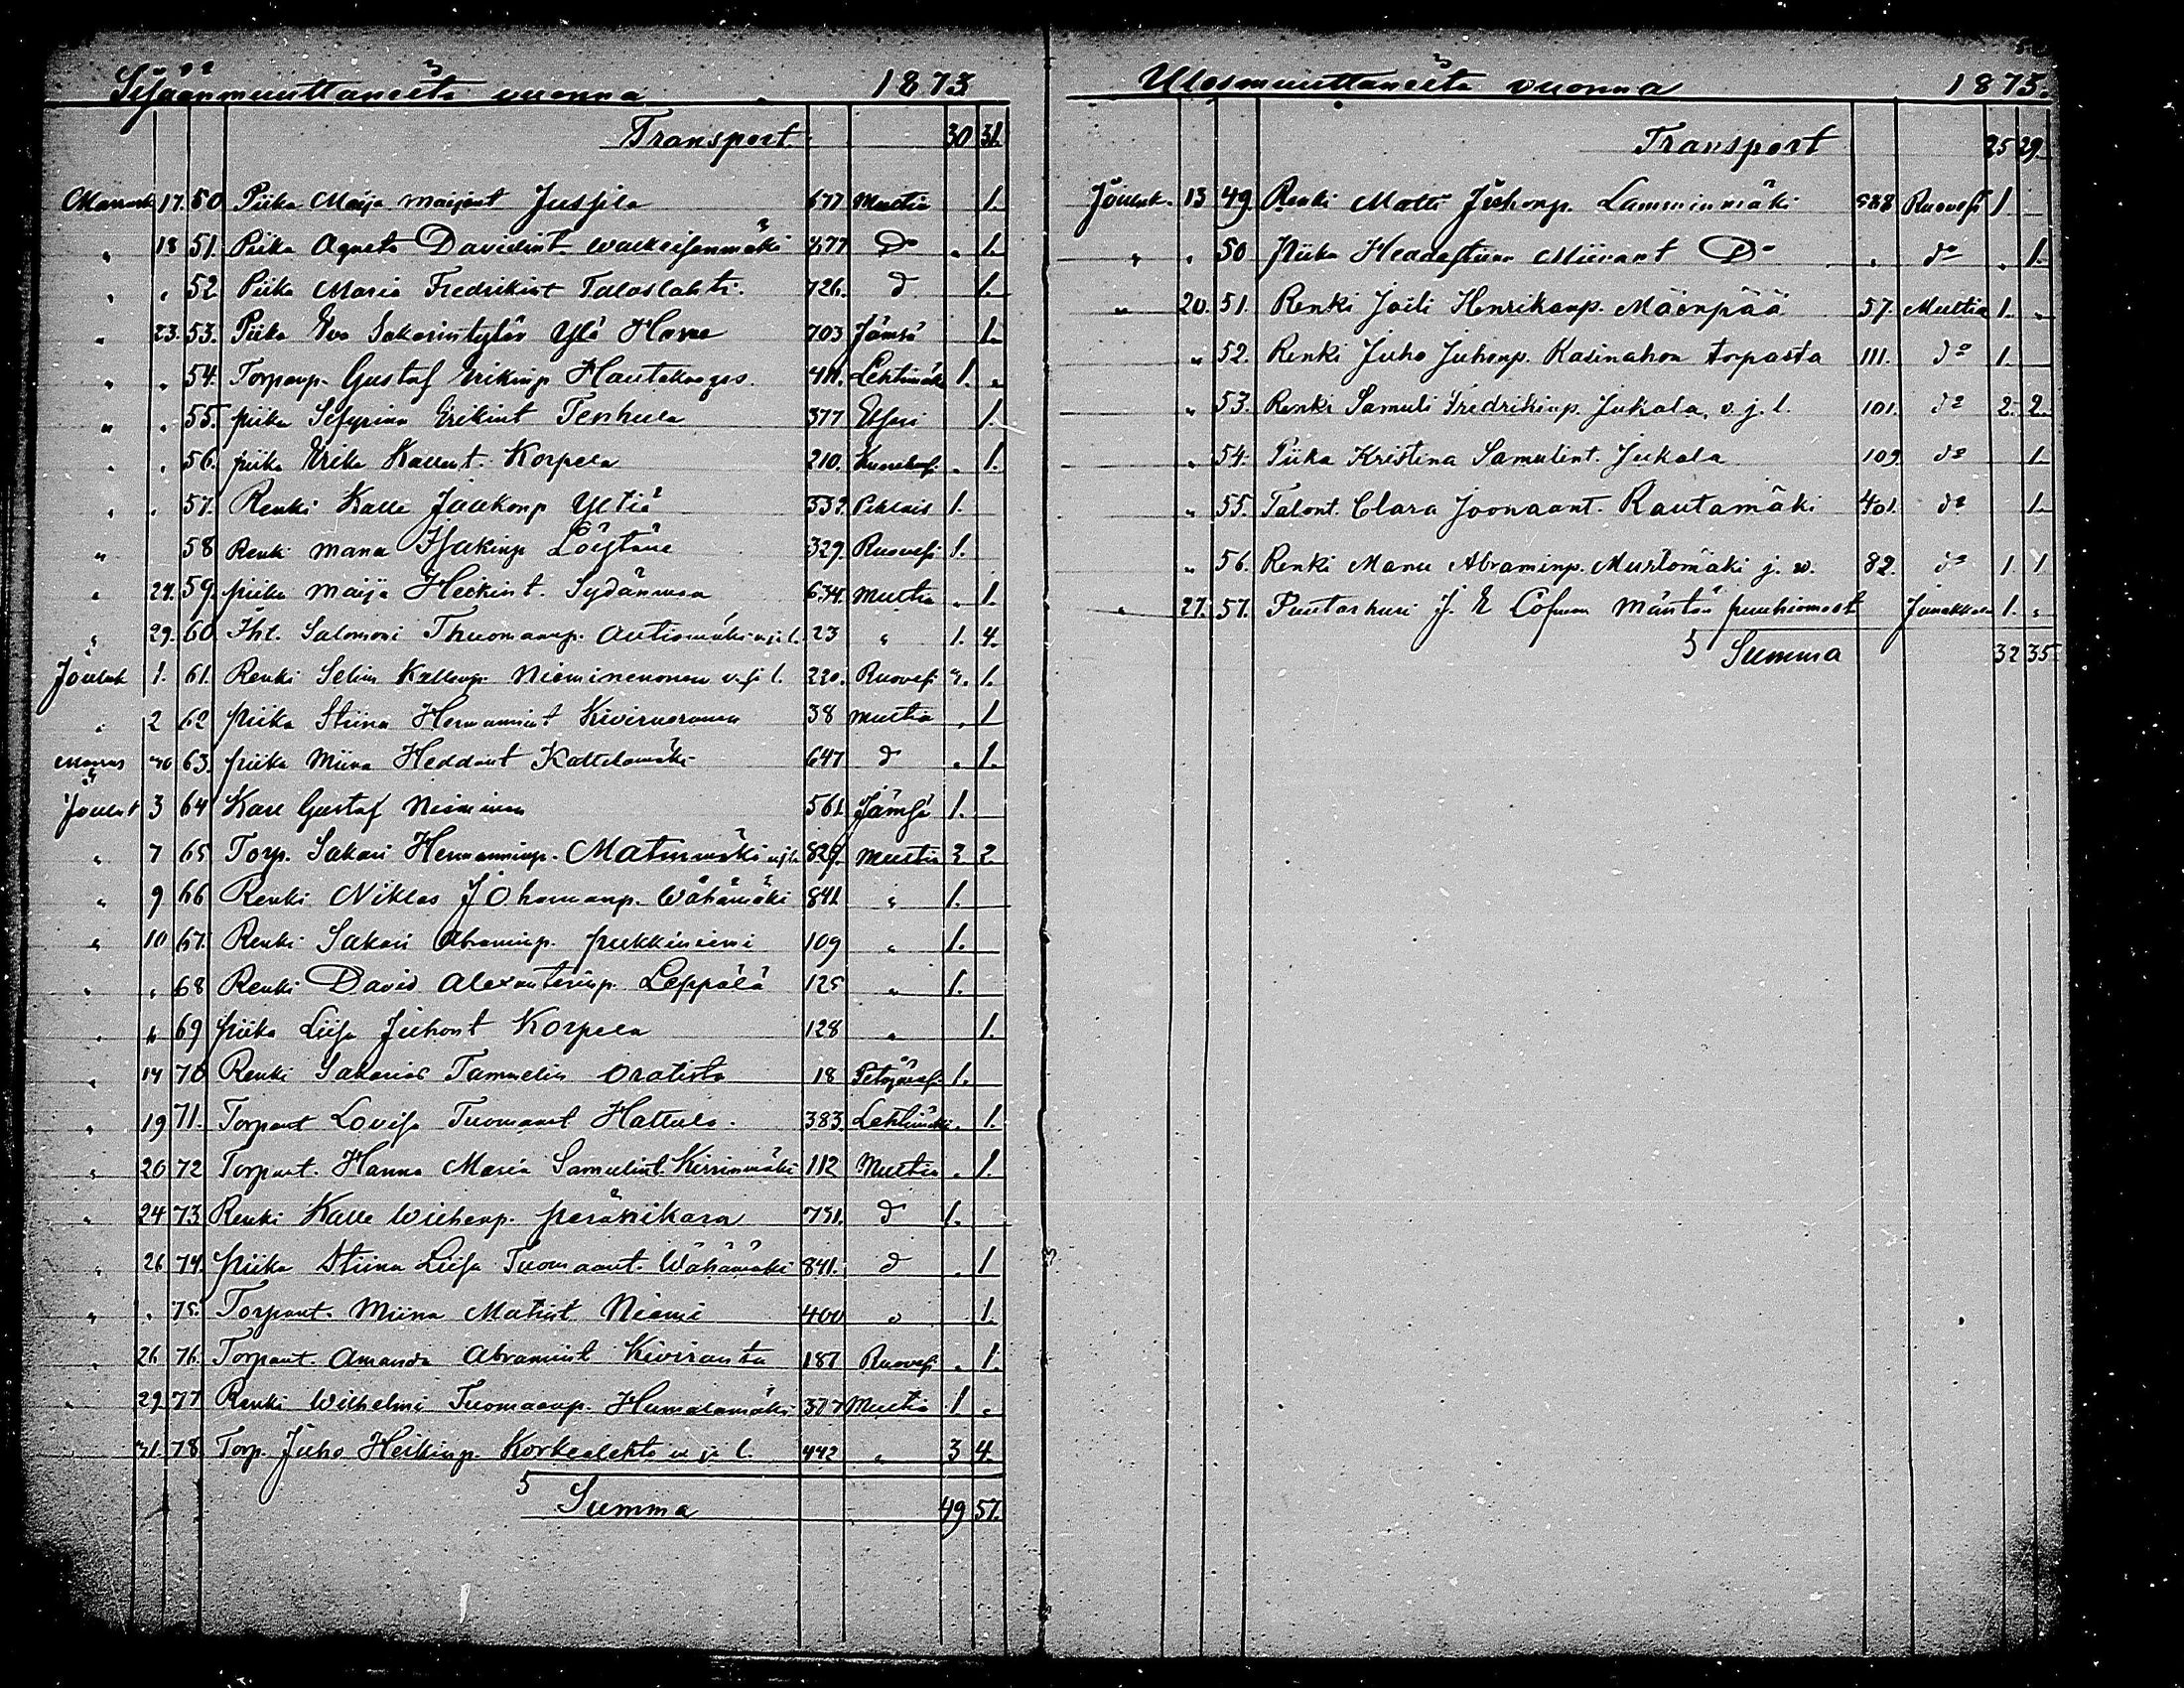 Sisäänmuuttaneita vuonna 1873
Transport 30 31.
Marrask 17. 50 Piika Maija Maijant Jussila 677 Multia 1.
" 18 51. Piika Agneta Davidint. 677 Do " 1.
" " 52 Piika Maria Fredrikint Taloslahti. 726. d 1.
" 23. 53. Piika Eva Sakarintytär Ylä 703 Jämsä 1.
" " 54. Torpanp. Gustaf Erikinp 411. Lehtimäki 1. "
" " 55. piika Erikint Tenhula 377 Etseri 1.
" " 56. piika Erika Kallent. Korpela 210. " 1.
" " 57. Renki Kalle Jaakonp Yltiä 332. 1.
" 58 Renki Manu Isakinp 329. Ruovesi 1.
" 24. 59. piika Maija Heikint. 634. Multia " 1.
" 29. 60. Itl. Salomoni Thuomaanp. Autiomäki w. j. l. 23 " 1. 4.
Jouluk 1. 61. Renki Selim Kallenp. v. j. l. 220. Ruovesi 1.
" 2 62 piika Stiina Hermannint 38 Multia " 1
Marras 30 63. piika Miina Heddant 647 d " 1.
Jouluk 3 64 Karl Gustaf Nieminen 561. Jämsä 1.
" 7 65 Torp. Sakari Hermanninp. 829. Multia 3 2
" 9 66 Renki Niklas Johannanp. Wähämäki 841 " 1.
" 10 67. Renki Sakari Abraminp. pukkiniemi 109 " 1.
" " 68 Renki David Alexanterinp. Leppälä 125 " 1.
" " 69 piika Liisa Juhont Korpela 128 " 1.
" 14 70 Renki Sakarias Tammelin 18 Petäjäves. 1.
" 19 71. Torpant Lovisa Tuomaant Hattula. 383. Lehtimäki. 1.
" 20 72 Torpant. Hanna Maria Samulint. Kirrinmäki 112 Multia " 1.
" 24 73 Renki Kalle Wilhenp. 731. d 1.
" 26 74. piika Stiina Liisa Tuomaant. Wähämäki 841. d " 1
" " 75. Torpant. Miina Matint Niemi 400 1.
" 26 76. Torpant. Amanda Abramint Kiviranta 187 Ruovesi " 1.
" 29. 77 Renki Wilhelmi Tuomaanp. Humalamäki 377 Multia 1. "
31. 78 Torp. Juho Heikinp. Korkealehto w. j. l. 442 " 3 4.
Summa 49 57.
Ulosmuuttaneita vuonna 1873.
Transport 25 29.
Jouluk. 13 49. Renki Matti Juhonp. Lamminmäki 588 Ruovesi 1
" " 50 Piika Heddastiina Miinant Do " do " 1.
" 20. 51. Renki Joili Henrikanp. Mäenpää 57. Multia 1. "
" 52. Renki Juho Juhonp. Kasinahon torpasta 111. do 1.
" 53. Renki Samuli Fredrikinp. Jukola, v. j. l. 101. do 2. 2.
" 54. Piika Kristina Samulint. Jukola 109. do 1.
" 55. Talont. Clara Joonaant. Rautamäki 401. do 1.
" 56. Renki Manu Abraminp. Mustomäki j. w. 82. do 1. 1
" 27. 57. Puutarhuri J. E Mäntän puuhiomost. Janakkala 1. "
Summa 32 35